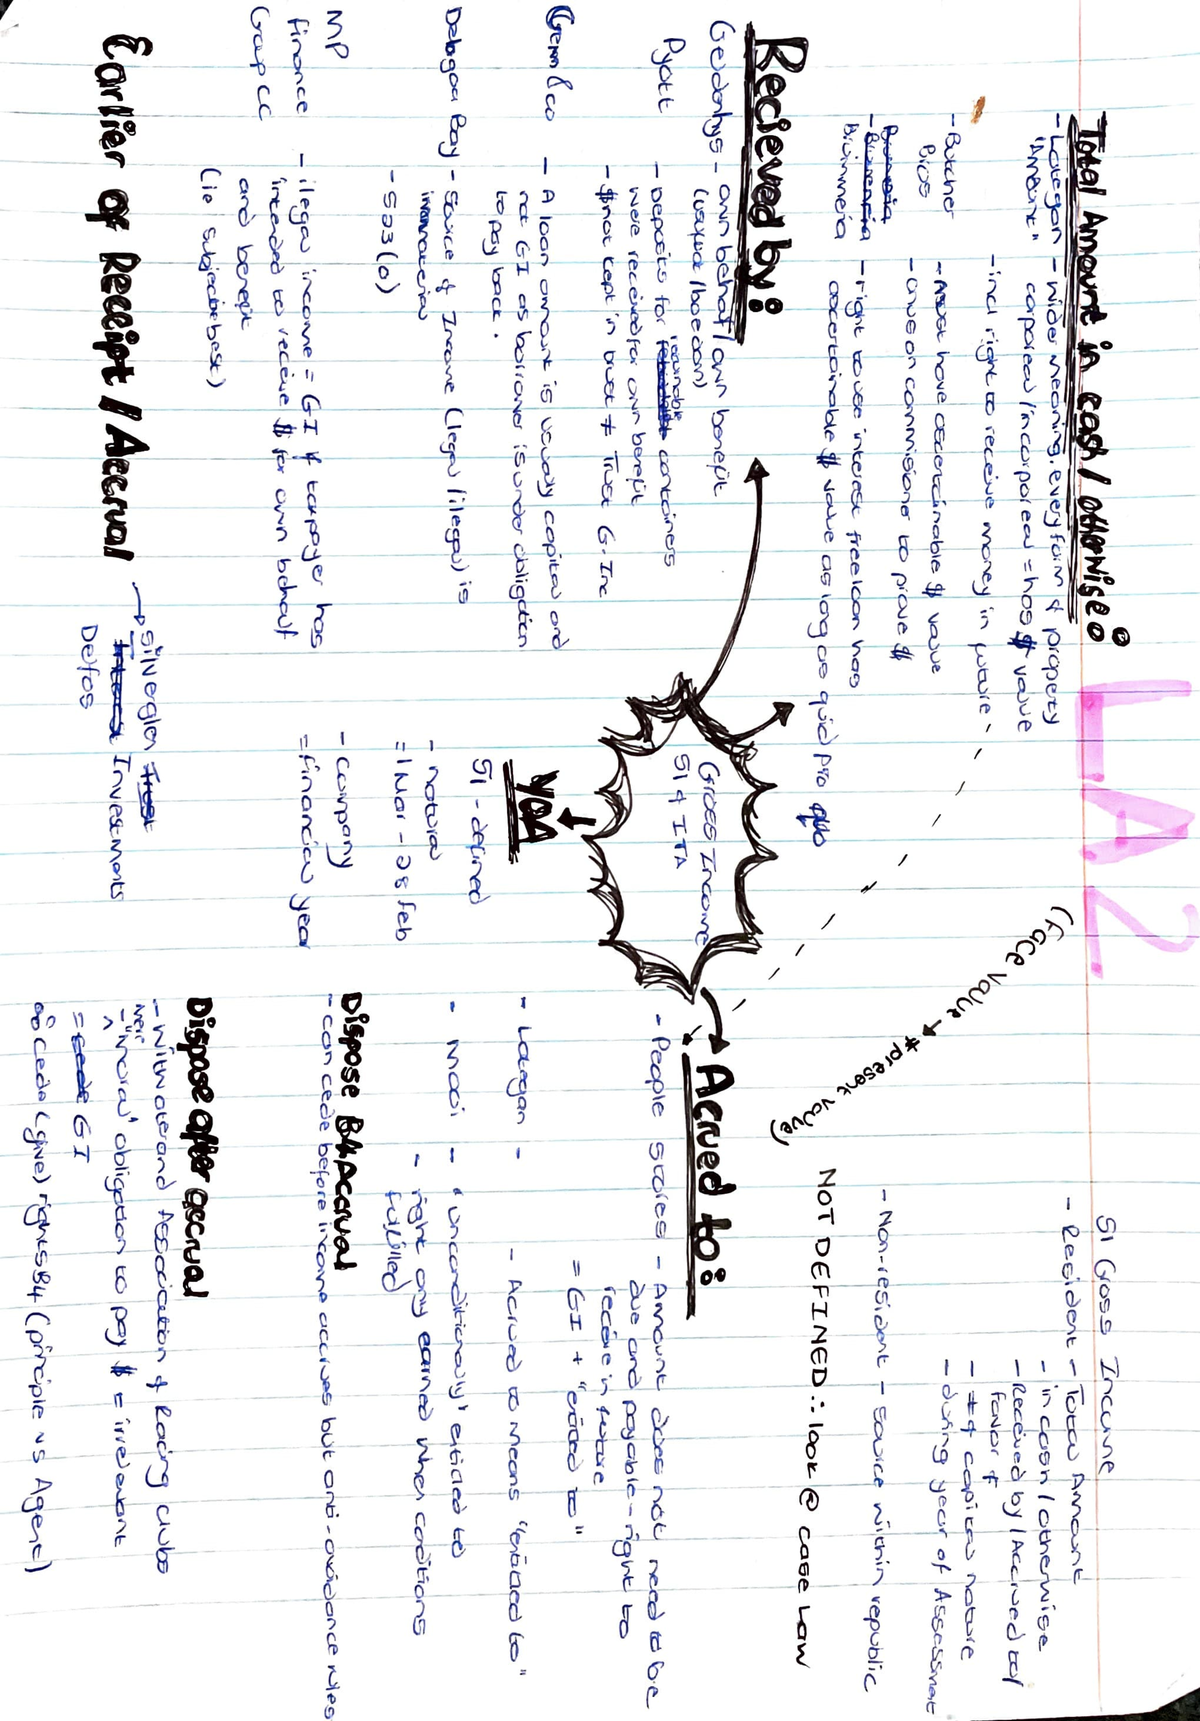 LA 2.
Total Amount in cash / otherwise:
- Lategan - wider meaning. every form of property
"Amount" corporeal / incorporeal = has $ value
- incl right to receive money in future
- Butcher - must have ascertainable $ value
Bros - onus on commissioner to prove $
- right to use interest free loan has
ascertainable $ value as long as quid pro quo
Recieved by:
Geldenhys - own behalf / own benefit
(usufruct / bae don)
Pyott - Deposits for returnable containers
were received for own benefit
- $ not kept in trust ≠ Trust G.Inc
Genn & co - A loan amount is usually capital and
not GI as borrower is under obligation
to pay back.
Delagoa Bay - Source of Income (legal / illegal) is
immaterial
- S23(o)
MP
Finance - ilegal income = GI if taxpayer has
Group CC intended to receive $ for own behalf
and benefit
(ie subjectivebest)
Earlier of Receipt / Accrual
→ Silverglen
Investments
Delfos
Gross Income
S1 of ITA
YOA
S1 - defined
- natural
= 1 Mar - 28 feb
- company
= financial year
(Face value → ≠ present value)
S1 Gross Income
- Resident - Total Amount
- in cash / otherwise
- Received by / Accrued to /
favor of
- ≠ of capital nature
- during year of Assessmet
- Non-resident - source within republic
NOT DEFINED ∴ look @ case Law
Accrued to:
- People Stores - Amount does not need to be
due and payable - right to
receive in future
= GI + "entitled to"
- Lategan - - Accrued to means "entitled to"
- Mooi - "unconditionally" entitled to
- right only earned when coditions
fulfilled
Dispose B4 Accrual
- can cede before income accrues but anti-avoidance rules
Dispose after accrual
- Witwaterand Association of Racing clubs
- "moral" obligation to pay $ = irrelevant
= GI
∴ cede (give) rights B4 (principle vs Agent)